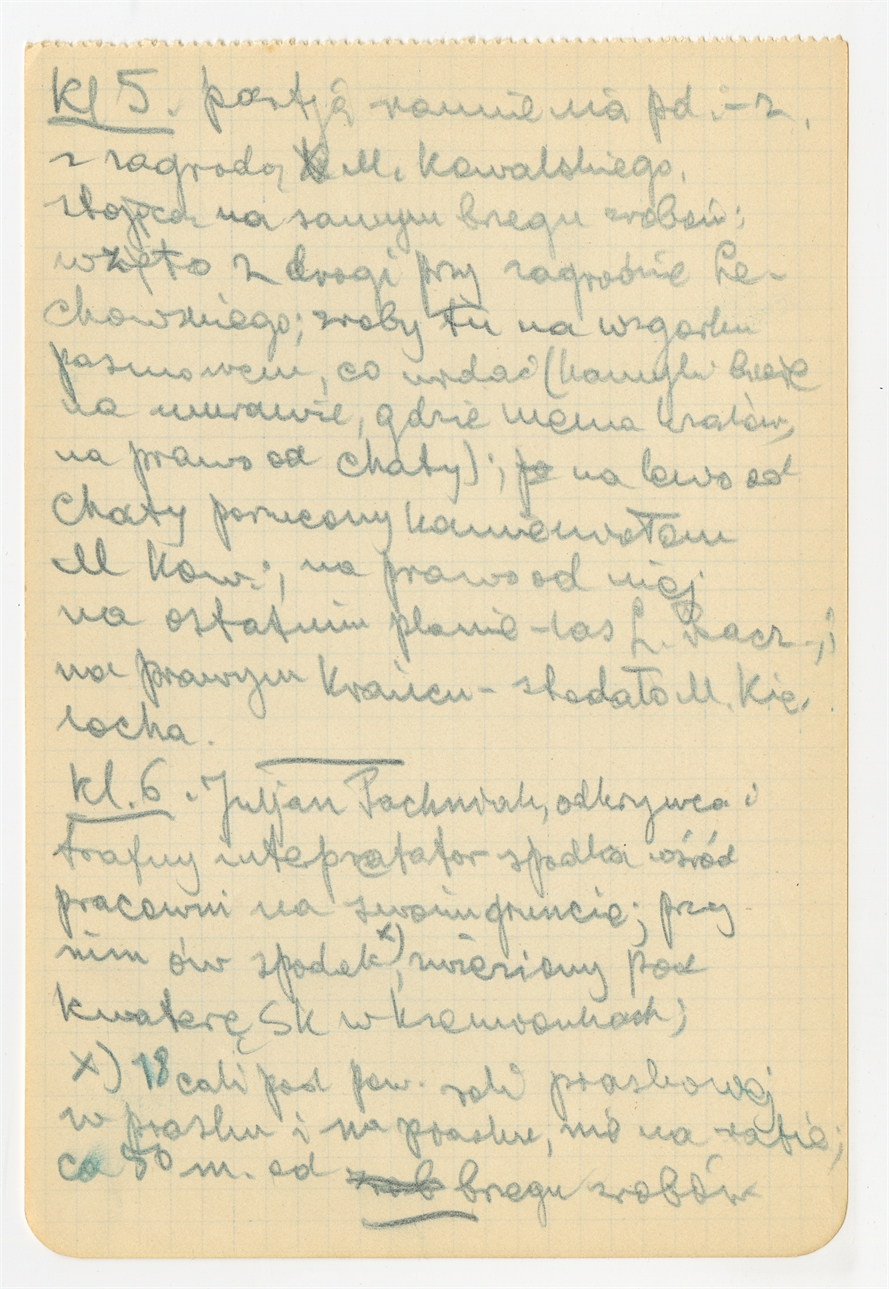 Kl 5. partja ramienia pd.-z.
z zagrodą M. Kowalskiego,
stojącą na samym brzegu zrobów;
wzięto z drogi przy zagrodzie Le-
chowskiego; zroby tu na wzgórku
pasmowem, co widać (kamyki bieżę
na murawie, gdzie niema krzaków,
na prawo od chaty); na lewo od
chaty porzucony kamieniołom
M Kow.; na prawo od niej
na ostatnim planie - las L. Kacz.;
na prawym krańcu - stodoła M. Kie,
locha.
Kl. 6. Juljan Pachniak, odkrywca i
trafny interpretator spodka wśród
pracowni na swoim gruncie; przy
nim ów spodek x), zwieziony pod
kwaterę SK w Krzemionkach;
x) 18 cali pod pow. roli piaskowej
w piasku i na piasku, nie na rafie;
ca 50 m. od brzegu zrobów